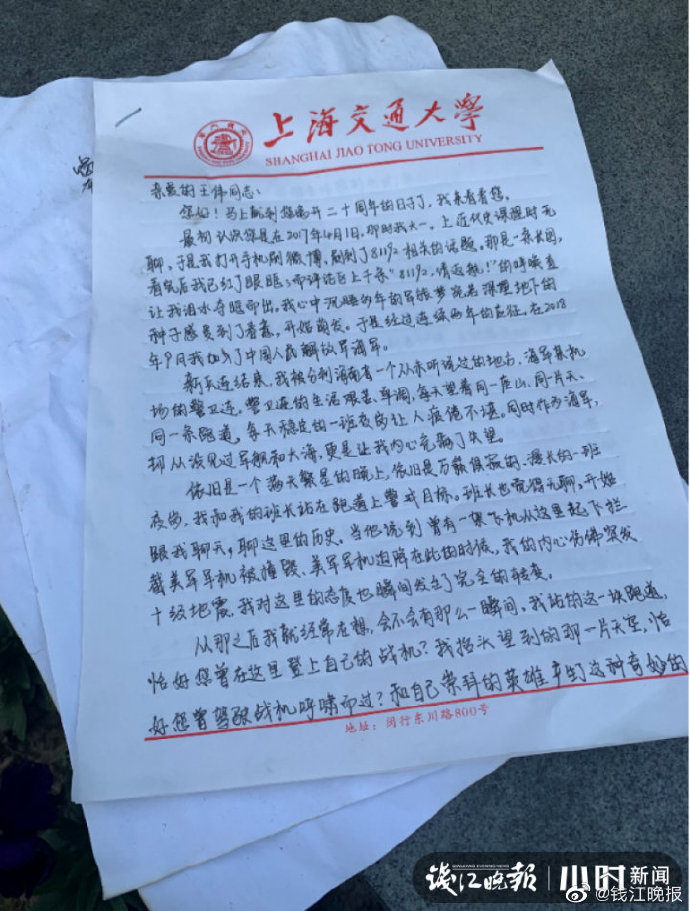 上海交通大学
SHANGHAI JIAO TONG UNIVERSITY
亲爱的王伟同志:
您好!马上就到您离开二十周年的日子了,我来看看您。
最初认识您是在2017年4月1日,那时我大一。上近代史课摸时无
聊,于是我打开手机刷微博,刷到了8192相关的话题。那是一条长图,
看完后我已红了眼眶;而评论区上千条“8192,请返航!”的呼唤直
让我泪水夺眶而出。我心中沉睡多年的军旅梦宛若深埋地下的
种子感受到了春意,开始萌发。于是经过连续两年的应征,在2018
年9月我加入了中国人民解放军海军。
新兵连结束,我被分到海南省一个从未听说过的地方,海军某机
场的警卫连。警卫连的生活艰苦、单调,每天望着同一座山、同一片天、
同一条跑道,每天稳定的一班夜岗让人疲倦不堪。同时作为海军,
却从没见过军舰和大海,更是让我内心充满了失望。
依旧是一个满天繁星的晚上,依旧是万籁俱寂的、漫长的一班
夜岗,我和我的班长站在跑道上警戒目标。班长也觉得无聊,开始
跟我聊天,聊这里的历史。当他说到曾有一架飞机从这里起飞拦
截美军军机被撞毁、美军军机迫降在此的时候,我的内心仿佛突发
十级地震,我对这里的态度也瞬间发生了完全的转变。
从那之后我就经常在想,会不会有那么一瞬间,我站的这一块跑道,
恰好您曾在这里登上自己的战机?我抬头望到的那一片天空,恰
好您曾驾驶战机呼啸而过?和自己崇拜的英雄产生这种奇妙的
地址:闵行东川路800号
钱江晚报
QIANJIANG EVENING NEWS
小时新闻
@钱江晚报